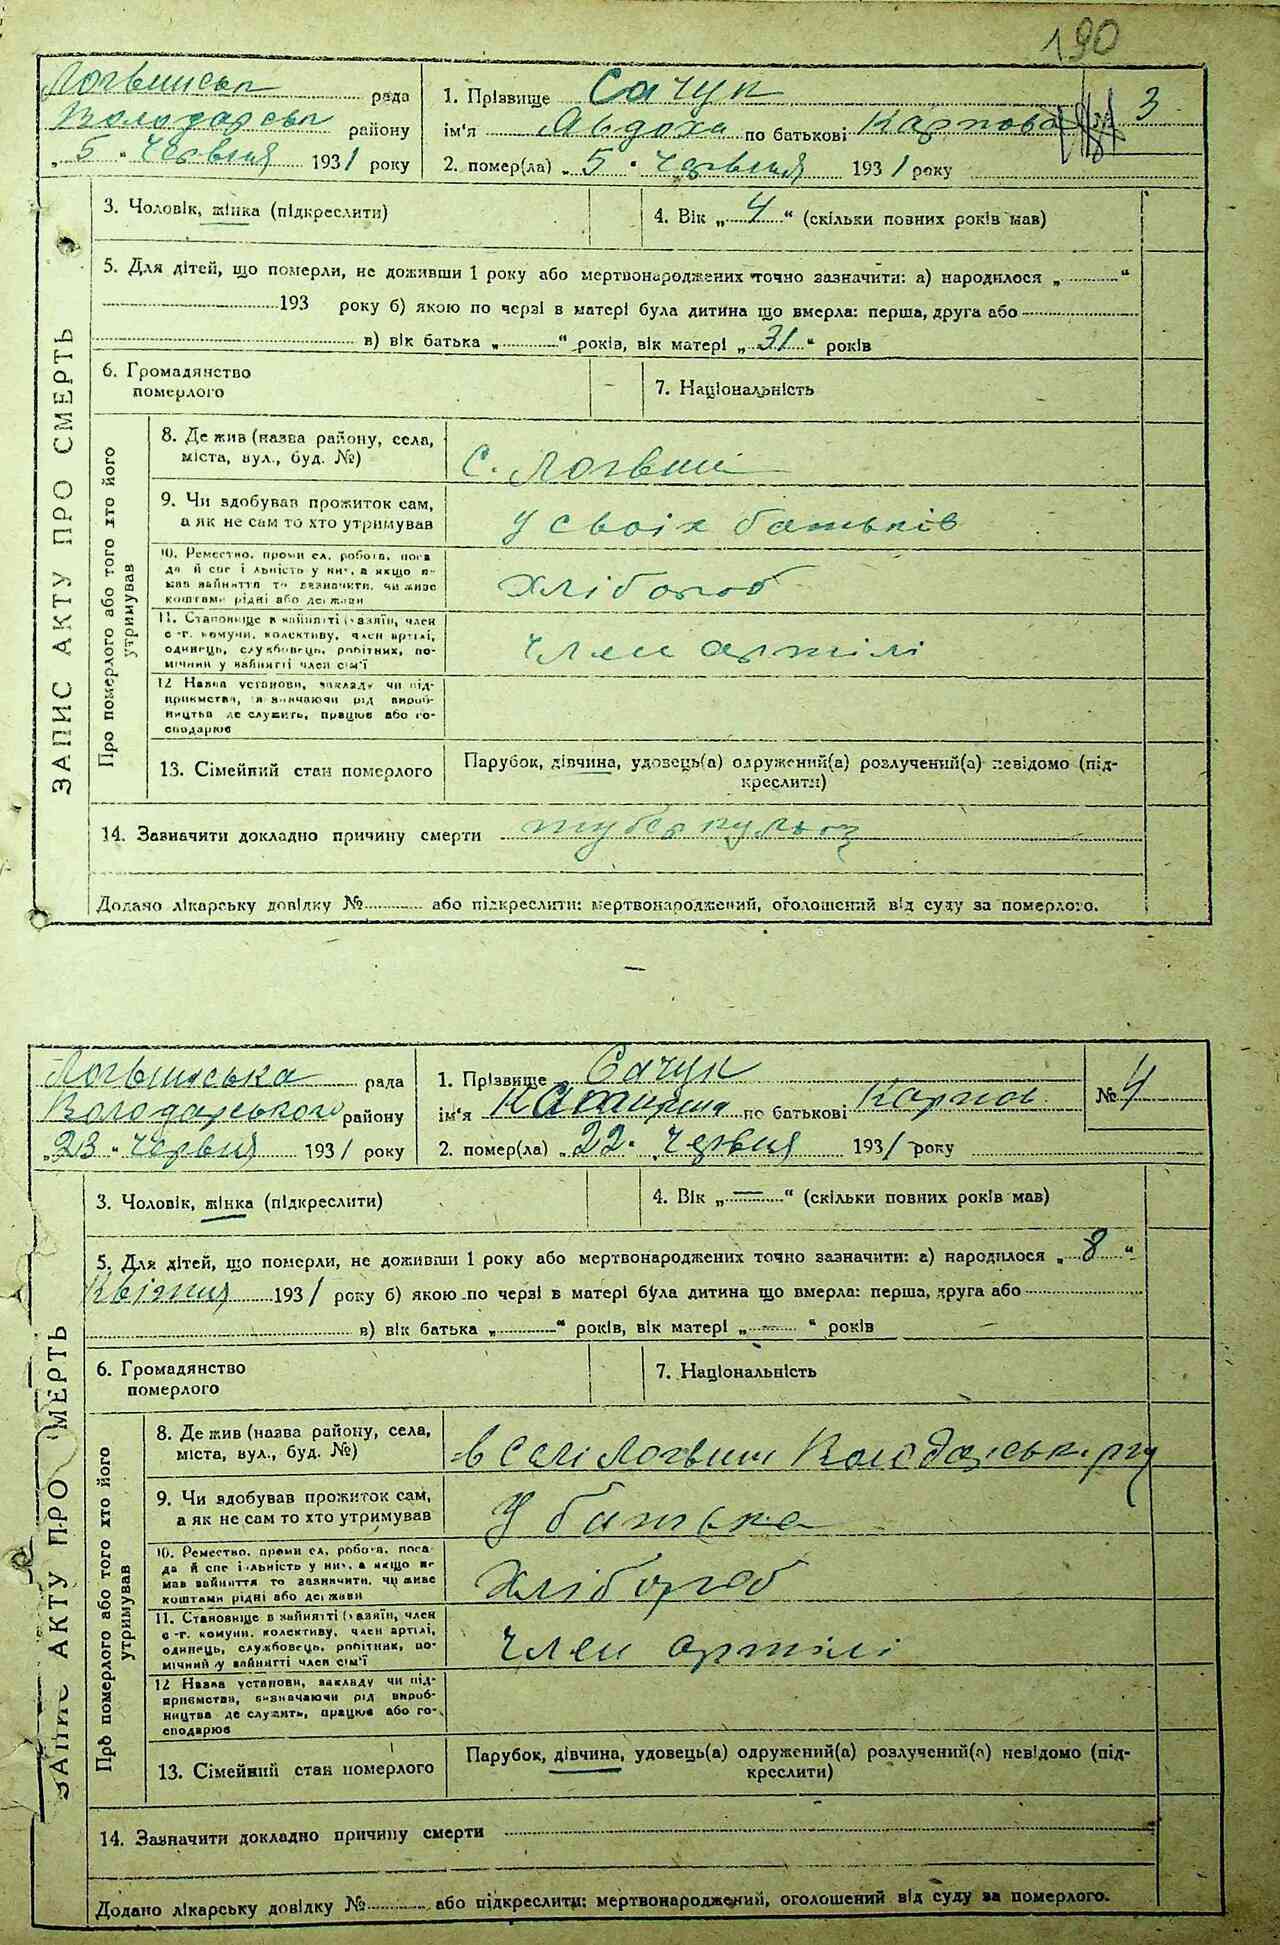 190
Логвинська рада
Володарськ району
„5“ Червня 1931 року
1. Прізвище Сачук
ім'я Явдоха по батькові Карпова
3
2. помер(ла) „5“ Червня 1931 року
3. Чоловік, жінка (підкреслити)
4. Вік „4“ (скільки повних років мав)
5. Для дітей, що померли, не доживши 1 року або мертвонароджених точно зазначити: а) народилося „ “
193 року б) якою по черзі в матері була дитина що вмерла: перша, друга або
в) вік батька „ “ років, вік матері „31“ років
6. Громадянство
померлого
7. Національність
ЗАПИС АКТУ ПРО СМЕРТЬ
Про померлого або того хто його
утримував
8. Де жив (назва району, села,
міста, вул., буд. №)
с. Логвин
9. Чи здобував прожиток сам,
а як не сам то хто утримував
У своіх батьків
10. Ремество, промисел, робота, поса
да й спеціальність у них, а якщо не
мав зайняття то зазначити, чи живе
коштами рідні або держави
Хлібороб
11. Становище в зайнятті (хазяїн, член
с-г. комуни, колективу, член артілі,
одинець, службовець, робітник, по-
мічний у зайнятті член сім'ї
Член артілі
12 Назва установи, закладу чи під-
приємства, зазначаючи рід вироб-
ництва де служить, працює або го-
сподарює
13. Сімейний стан померлого
Парубок, дівчина, удовець(а) одружений(а) розлучений(а) невідомо (під-
креслити)
14. Зазначити докладно причину смерти туберкульоз
Додано лікарську довідку № або підкреслити: мертвонароджений, оголошений від суду за померлого.
Логвинська рада
Володарського району
„23“ Червня 1931 року
1. Прізвище Сачук
ім'я Катирина по батькові Карпов
№ 4
2. помер(ла) „22“ Червня 1931 року
3. Чоловік, жінка (підкреслити)
4. Вік „—“ (скільки повних років мав)
5. Для дітей, що померли, не доживши 1 року або мертвонароджених точно зазначити: а) народилося „8“
Квітня 1931 року б) якою по черзі в матері була дитина що вмерла: перша, друга або
в) вік батька „ “ років, вік матері „—“ років
6. Громадянство
померлого
7. Національність
ЗАПИС АКТУ ПРО СМЕРТЬ
Про померлого або того хто його
утримував
8. Де жив (назва району, села,
міста, вул., буд. №)
в селі Логвин Володарськ. р-ну
9. Чи здобував прожиток сам,
а як не сам то хто утримував
У батька
10. Ремество, промисел, робота, поса
да й спеціальність у них, а якщо не
мав зайняття то зазначити, чи живе
коштами рідні або держави
Хлібороб
11. Становище в зайнятті (хазяїн, член
с-г. комуни, колективу, член артілі,
одинець, службовець, робітник, по-
мічний у зайнятті член сім'ї
Член артілі
12 Назва установи, закладу чи під-
приємства, зазначаючи рід вироб-
ництва де служить, працює або го-
сподарює
13. Сімейний стан померлого
Парубок, дівчина, удовець(а) одружений(а) розлучений(а) невідомо (під-
креслити)
14. Зазначити докладно причину смерти
Додано лікарську довідку № або підкреслити: мертвонароджений, оголошений від суду за померлого.